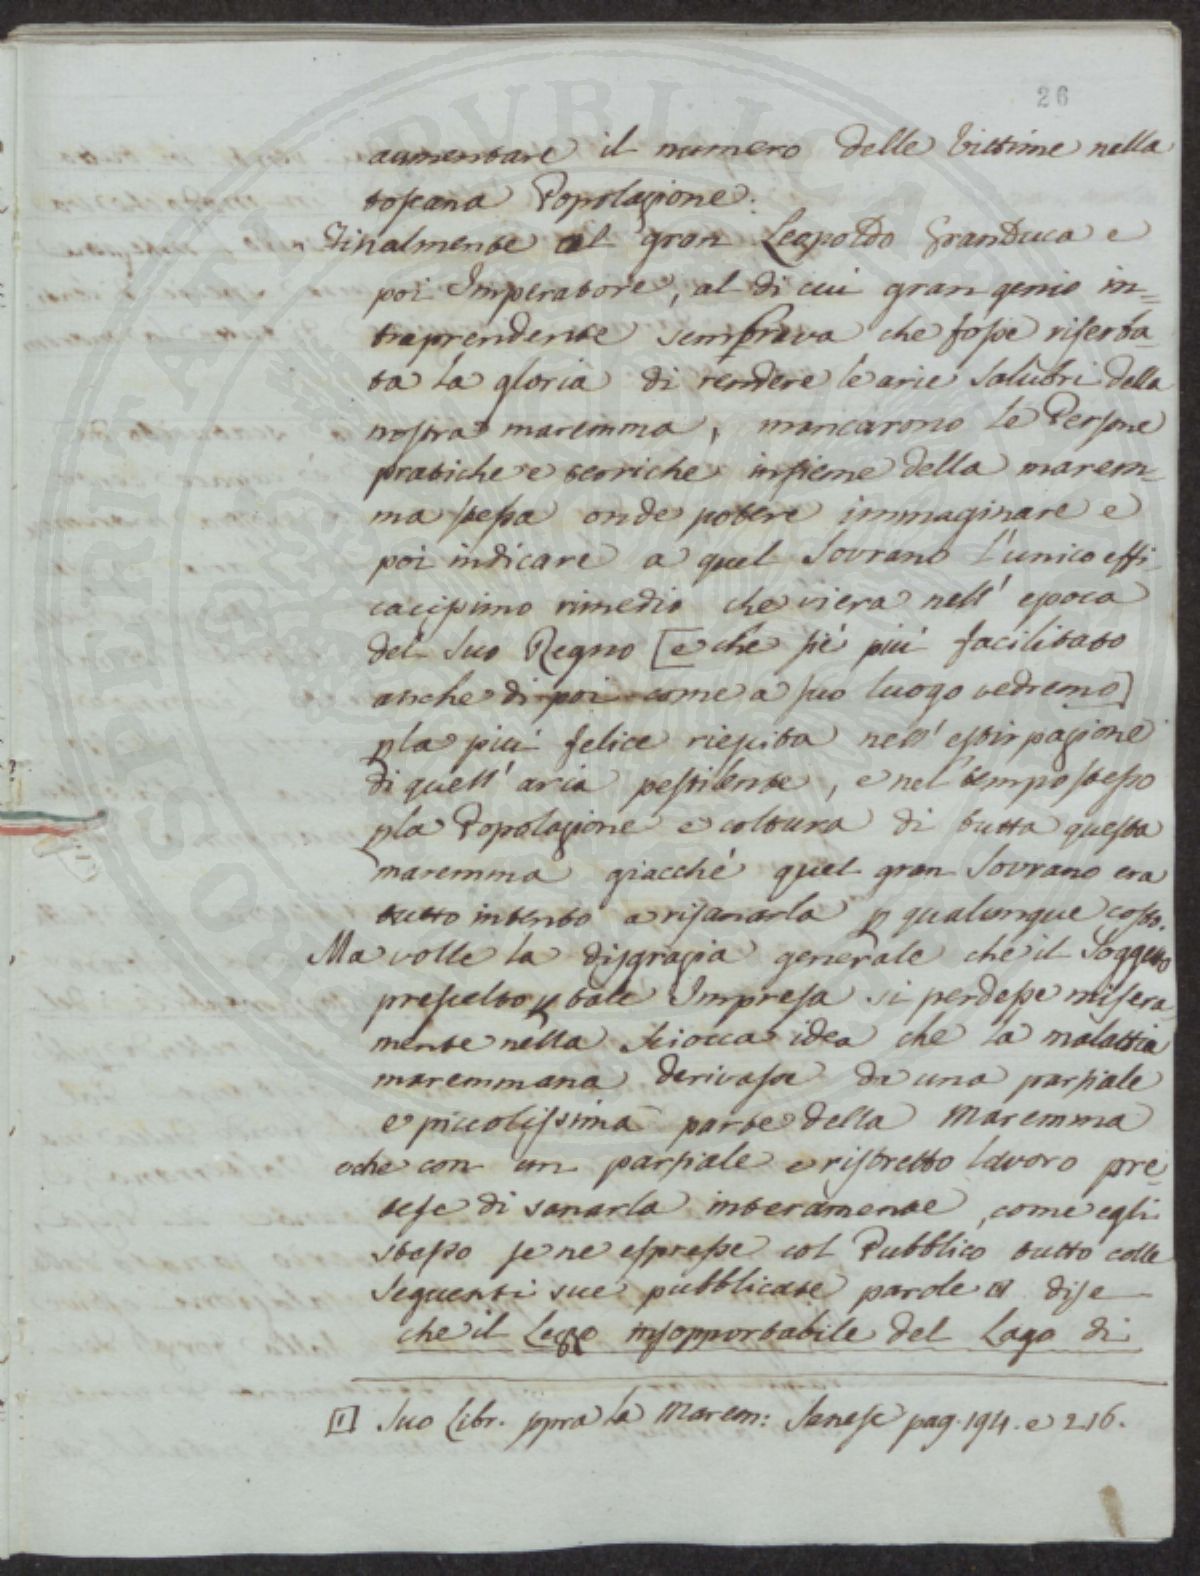 26
aumentare il numero delle Vittime nella
toscana Popolazione.
Finalmente al gran Leopoldo Granduca e
poi Imperatore, al di cui gran genio in=
traprendente sembrava che fosse riserba-
ta la gloria di rendere l'arie salubri della
nostra maremma, mancarono le Persone
pratiche e teoriche insieme della marem=
ma stessa onde potere immaginare e
poi indicare a quel Sovrano l'unico effi
cacissimo rimedio che viera nell' epoca
del suo Regno [e che si è più facilitato
anche di poi come a suo luogo vedremo]
p la più felice riescita nell' estirpazione
di quell' aria pestilente, e nel tempo stesso
p la Popolazione e coltura di tutta questa
maremma giacchè quel gran Sovrano era
tutto intento a risanarla p qualunque costo.
Ma volle la disgrazia generale che il Soggetto
prescelto p tale Impresa si perdesse misera-
mente nella sciocca idea che la malattia
maremmana derivasse da una parziale
e piccolissima parte della Maremma
oche con un parziale e ristretto lavoro pre-
tese di sanarla interamente, come egli
stesso se ne espresse col Pubblico tutto colle
seguenti sue pubblicate parole dise
che il Lezzo insopportabile del Lago di
[1] Suo Libr. sopra la Marem: Sanese pag. 194. e 216.
PUBLICAE
PROSPERITATI